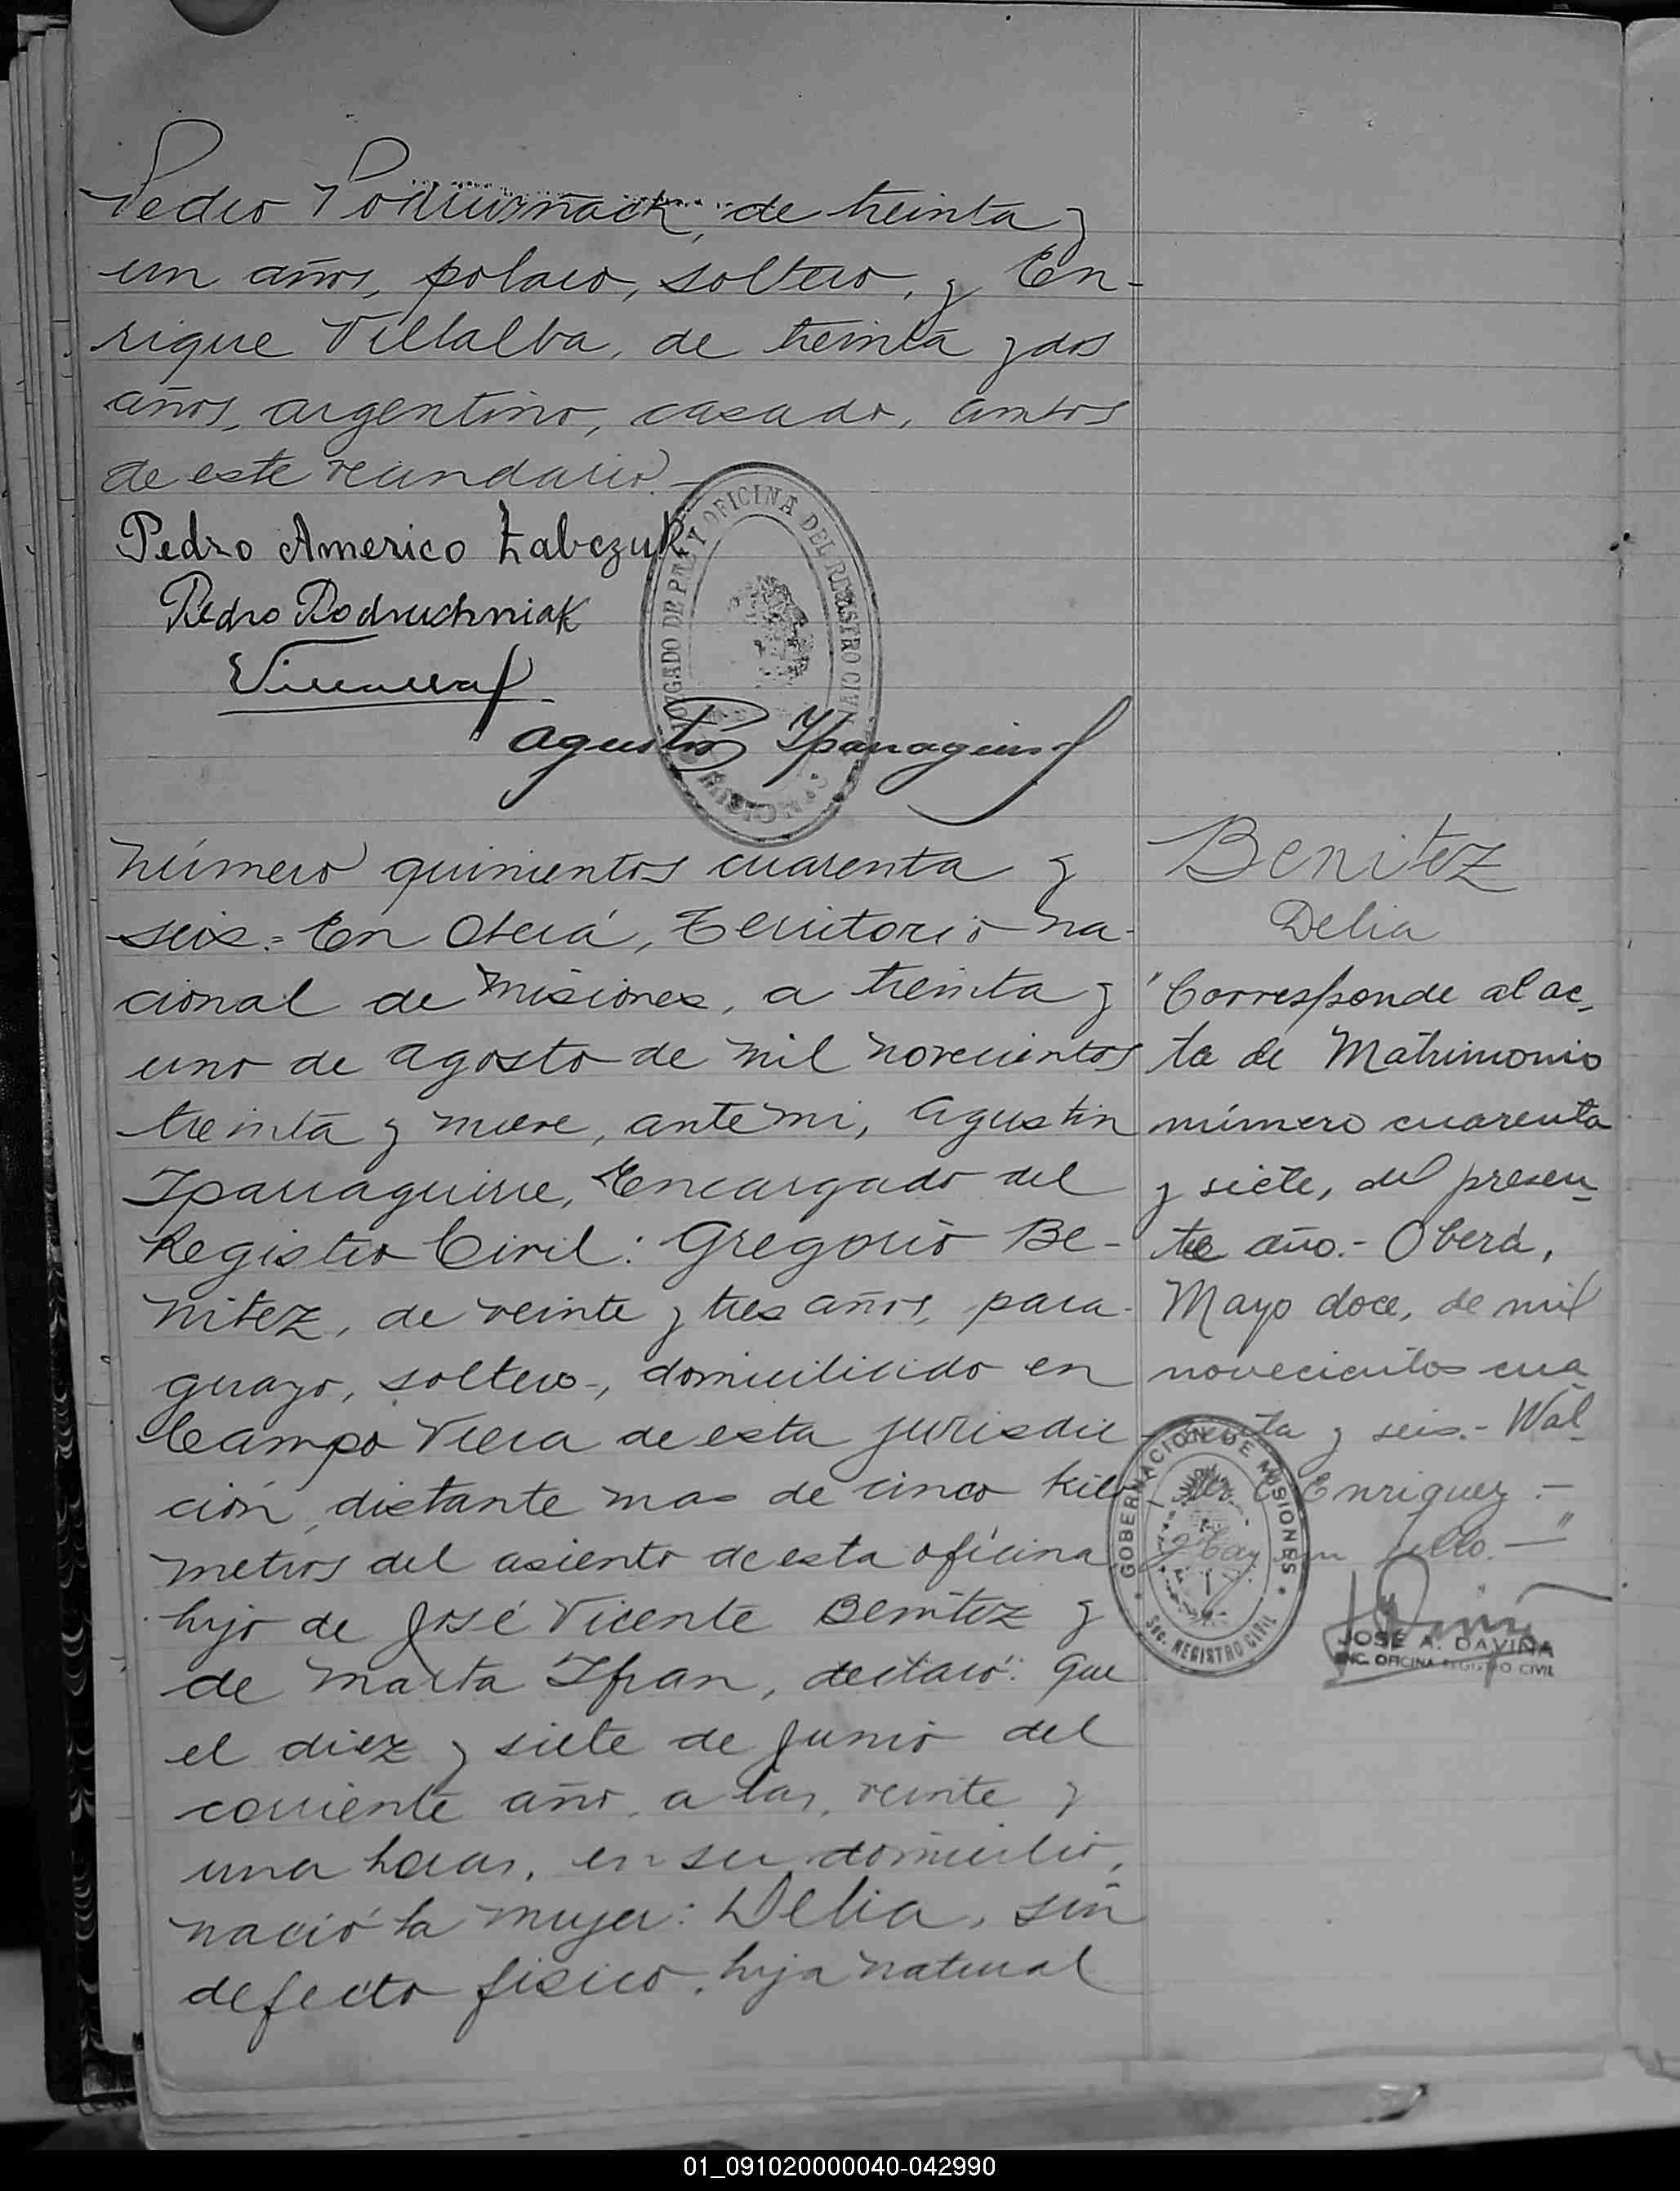 Pedro Podrusnack, de treinta y
un años, polaco, soltero, y En-
rique Villalba, de treinta y dos
años, argentino, casado, ambos
de este vecindario.-
Pedro Americo Łabczuk
Pedro Podruchniak
JUZGADO DE PAZ Y OFICINA DEL REGISTRO CIVIL
Agustin Iparraguirre
Número quinientos cuarenta y
seis.= En Oberá, Territorio Na-
cional de Misiones, a treinta y
uno de Agosto de mil novecientos
treinta y nueve, ante mi, Agustin
Iparraguirre, Encargado del
Registro Civil: Gregorio Be-
nitez, de veinte y tres años, para-
guayo, soltero, domiciliado en
Campo Viera de esta jurisdic
ción, distante mas de cinco kiló
metros del asiento de esta oficina
hijo de José Vicente Benitez y
de Marta Ifran, declaró: Que
el diez y siete de Junio del
corriente año, a las, veinte y
una horas, en su domicilio,
nació la mujer: Delia, sin
defecto fisico, hija natural
Benitez
Delia
"Corresponde al ac-
ta de Matrimonio
número cuarenta
y siete, del presen-
te año.- Oberá,
Mayo doce, de mil
novecientos cua
renta y seis.- Wal-
ter Enriquez.-
Hay un sello.-"
GOBERNACION DE MISIONES
Sec. REGISTRO CIVIL
JOSE A. DAVIÑA
ENC. OFICINA REGISTRO CIVIL
01_091020000040-042990